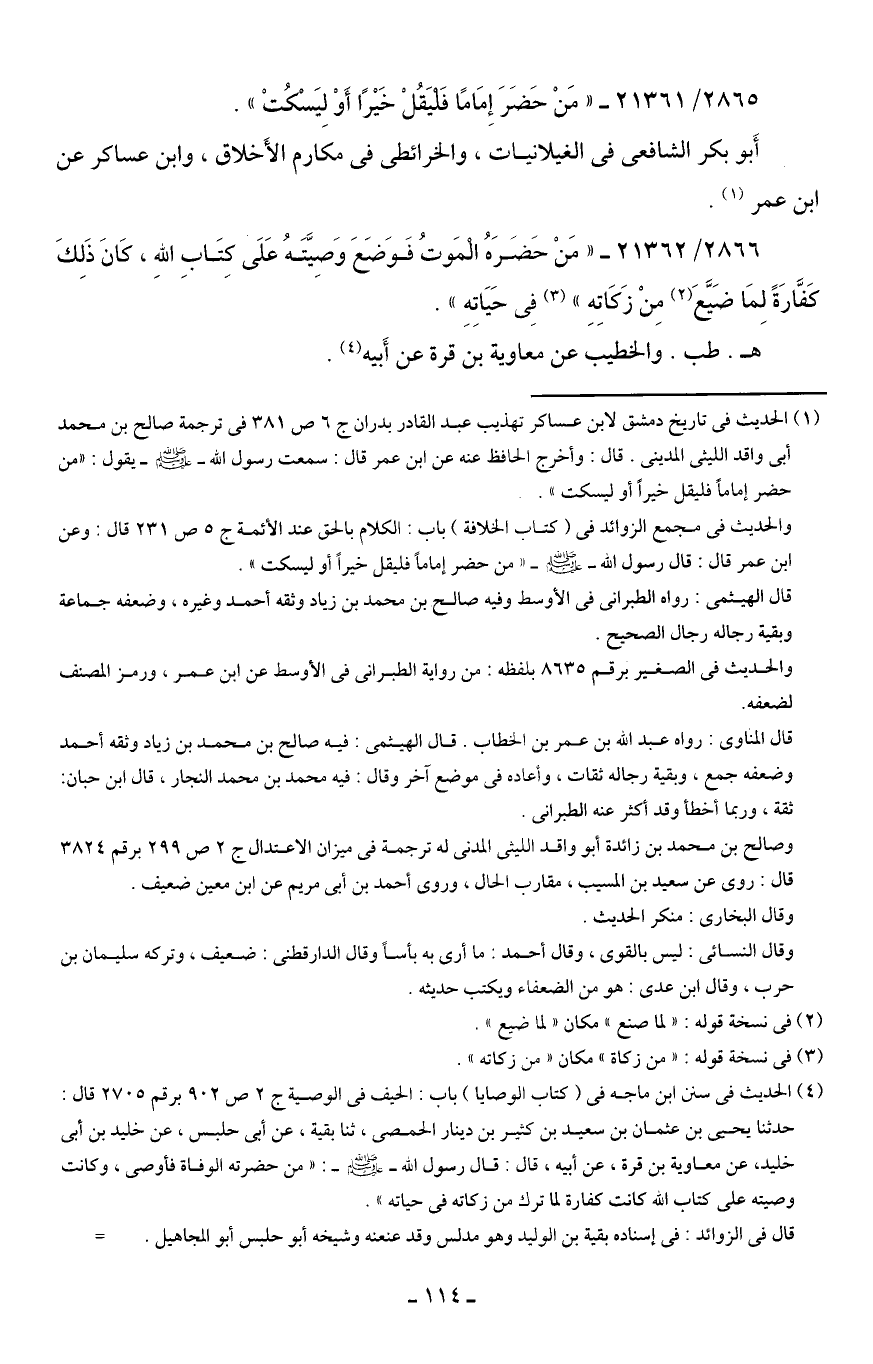 ٢١٣٦١/٢٨٦٥ ـ « مَنْ حَضَرَ إِمَامًا فَلْيَقُلْ خَيْرًا أَوْ لِيَسْكُتْ » .
أَبو بكر الشافعى فى الغيلانيـات ، والخرائطى فى مكارم الأَخلاق ، وابن عساكر عن
ابن عمر (١) .
٢١٣٦٢/٢٨٦٦ ـ « مَنْ حَضَـرَهُ الْمَوتُ فَـوَضَعَ وَصِيَّتَـهُ عَلَى كِتَـابِ اللهِ ، كَانَ ذَلِكَ
كَفَّارَةً لِمَا ضَيَّعَ (٢) مِنْ زَكَاتِهِ » (٣) فِى حَيَاتِهِ » .
هـ . طب . والخطيب عن معاوية بن قرة عن أَبيه (٤) .
(١) الحديث فى تاريخ دمشق لابن عـساكر تهذيب عبـد القادر بدران ج ٦ ص ٣٨١ فى ترجمة صالح بن مـحمد
أبى واقد الليثى المدينى . قال : وأخرج الحافظ عنه عن ابن عمر قال : سمعت رسول الله ـ ﷺ ـ يقول : «من
حضر إماماً فليقل خيراً أو ليسكت » .
والحديث فى مـجمع الزوائد فى ( كتـاب الخلافة ) باب : الكلام بالحق عند الأئمـة ج ٥ ص ٢٣١ قال : وعن
ابن عمر قال : قال رسول الله ـ ﷺ ـ « من حضر إماماً فليقل خيراً أو ليسكت » .
قال الهيـثمى : رواه الطبرانى فى الأوسط وفيه صالـح بن محمد بن زياد وثقه أحمـد وغيره ، وضعفه جـماعة
وبقية رجاله رجال الصحيح .
والحـديث فى الصـغـير برقـم ٨٦٣٥ بلفظه : من رواية الطبـرانى فى الأوسط عن ابن عـمـر ، ورمـز المصنف
لضعفه.
قال المناوى : رواه عـبد الله بن عـمر بن الخطاب . قـال الهيـثمى : فيـه صالح بن مـحمـد بن زياد وثقه أحـمد
وضعفه جمع ، وبقية رجاله ثقات ، وأعاده فى موضع آخر وقال : فيه محمد بن محمد النجار ، قال ابن حبان:
ثقة ، وربما أخطأ وقد أكثر عنه الطبرانى .
وصالح بن مـحمد بن زائدة أبو واقـد الليثى المدنى له ترجمـة فى ميزان الاعـتدال ج ٢ ص ٢٩٩ برقم ٣٨٢٤
قال : روى عن سعيد بن المسيب ، مقارب الحال ، وروى أحمد بن أبى مريم عن ابن معين ضعيف .
وقال البخارى : منكر الحديث .
وقال النسـائى : ليس بالقوى ، وقال أحـمد : ما أرى به بأسـاً وقال الدارقطنى : ضـعيف ، وتركه سليـمان بن
حرب ، وقال ابن عدى : هو من الضعفاء ويكتب حديثه .
(٢) فى نسخة قوله : « لما صنع » مكان « لما ضيع » .
(٣) فى نسخة قوله : « من زكاة » مكان « من زكاته » .
(٤) الحديث فى سنن ابن ماجـه فى ( كتاب الوصايا ) باب : الحيف فى الوصـية ج ٢ ص ٩٠٢ برقم ٢٧٠٥ قال :
حدثنا يحـيى بن عثمـان بن سعيـد بن كثيـر بن دينار الحمـصى ، ثنا بقية ، عن أبى حلبـس ، عن خليد بن أبى
خليد، عن معـاوية بن قرة ، عن أبيه ، قال : قـال رسول الله ـ ﷺ ـ : « من حضرته الوفـاة فأوصى ، وكانت
وصيته على كتاب الله كانت كفارة لما ترك من زكاته فى حياته » .
قال فى الزوائد : فى إسناده بقية بن الوليد وهو مدلس وقد عنعنه وشيخه أبو حلبس أبو المجاهيل . =
ـ ١١٤ ـ